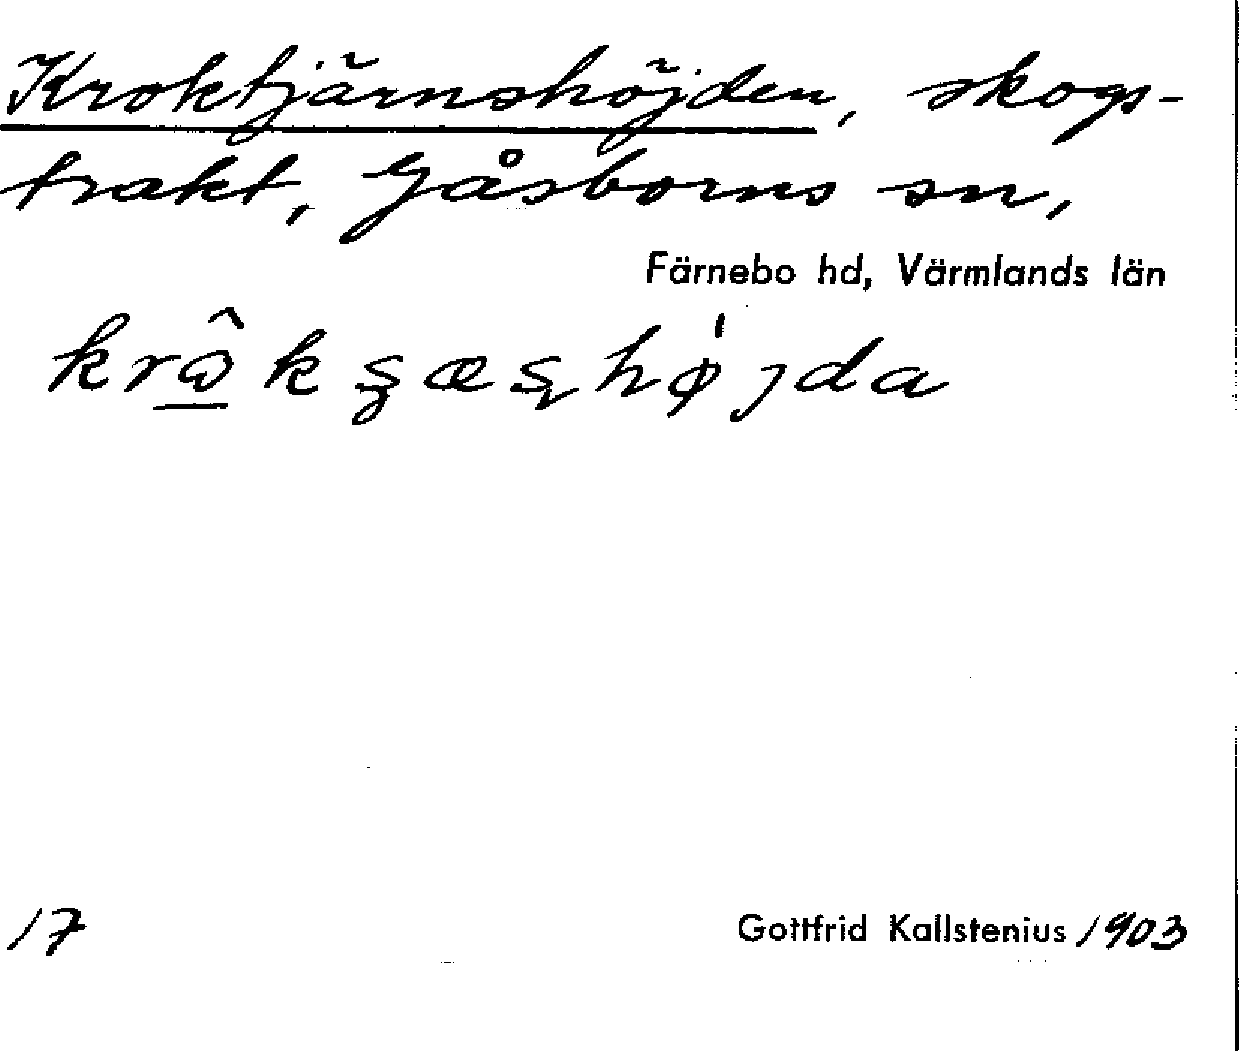 Kroktjärnshöjden, skogs-
trakt, Gåsborns sn,
Färnebo hd, Värmlands län
17
Gottfrid Kallstenius 1903